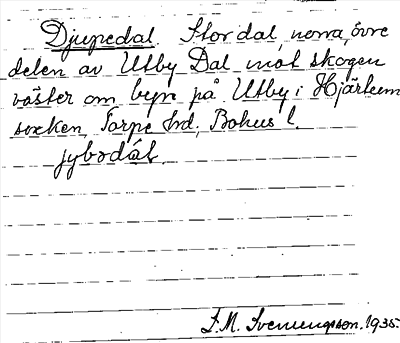 Djupedal. Stor dal, norra, övre
delen av Utby Dal mot skogen
väster om byn på Utby i Hjärtum
socken, Torpe hrd, Bohus l.
jybodal.
F.M. Svenungsson. 1935.